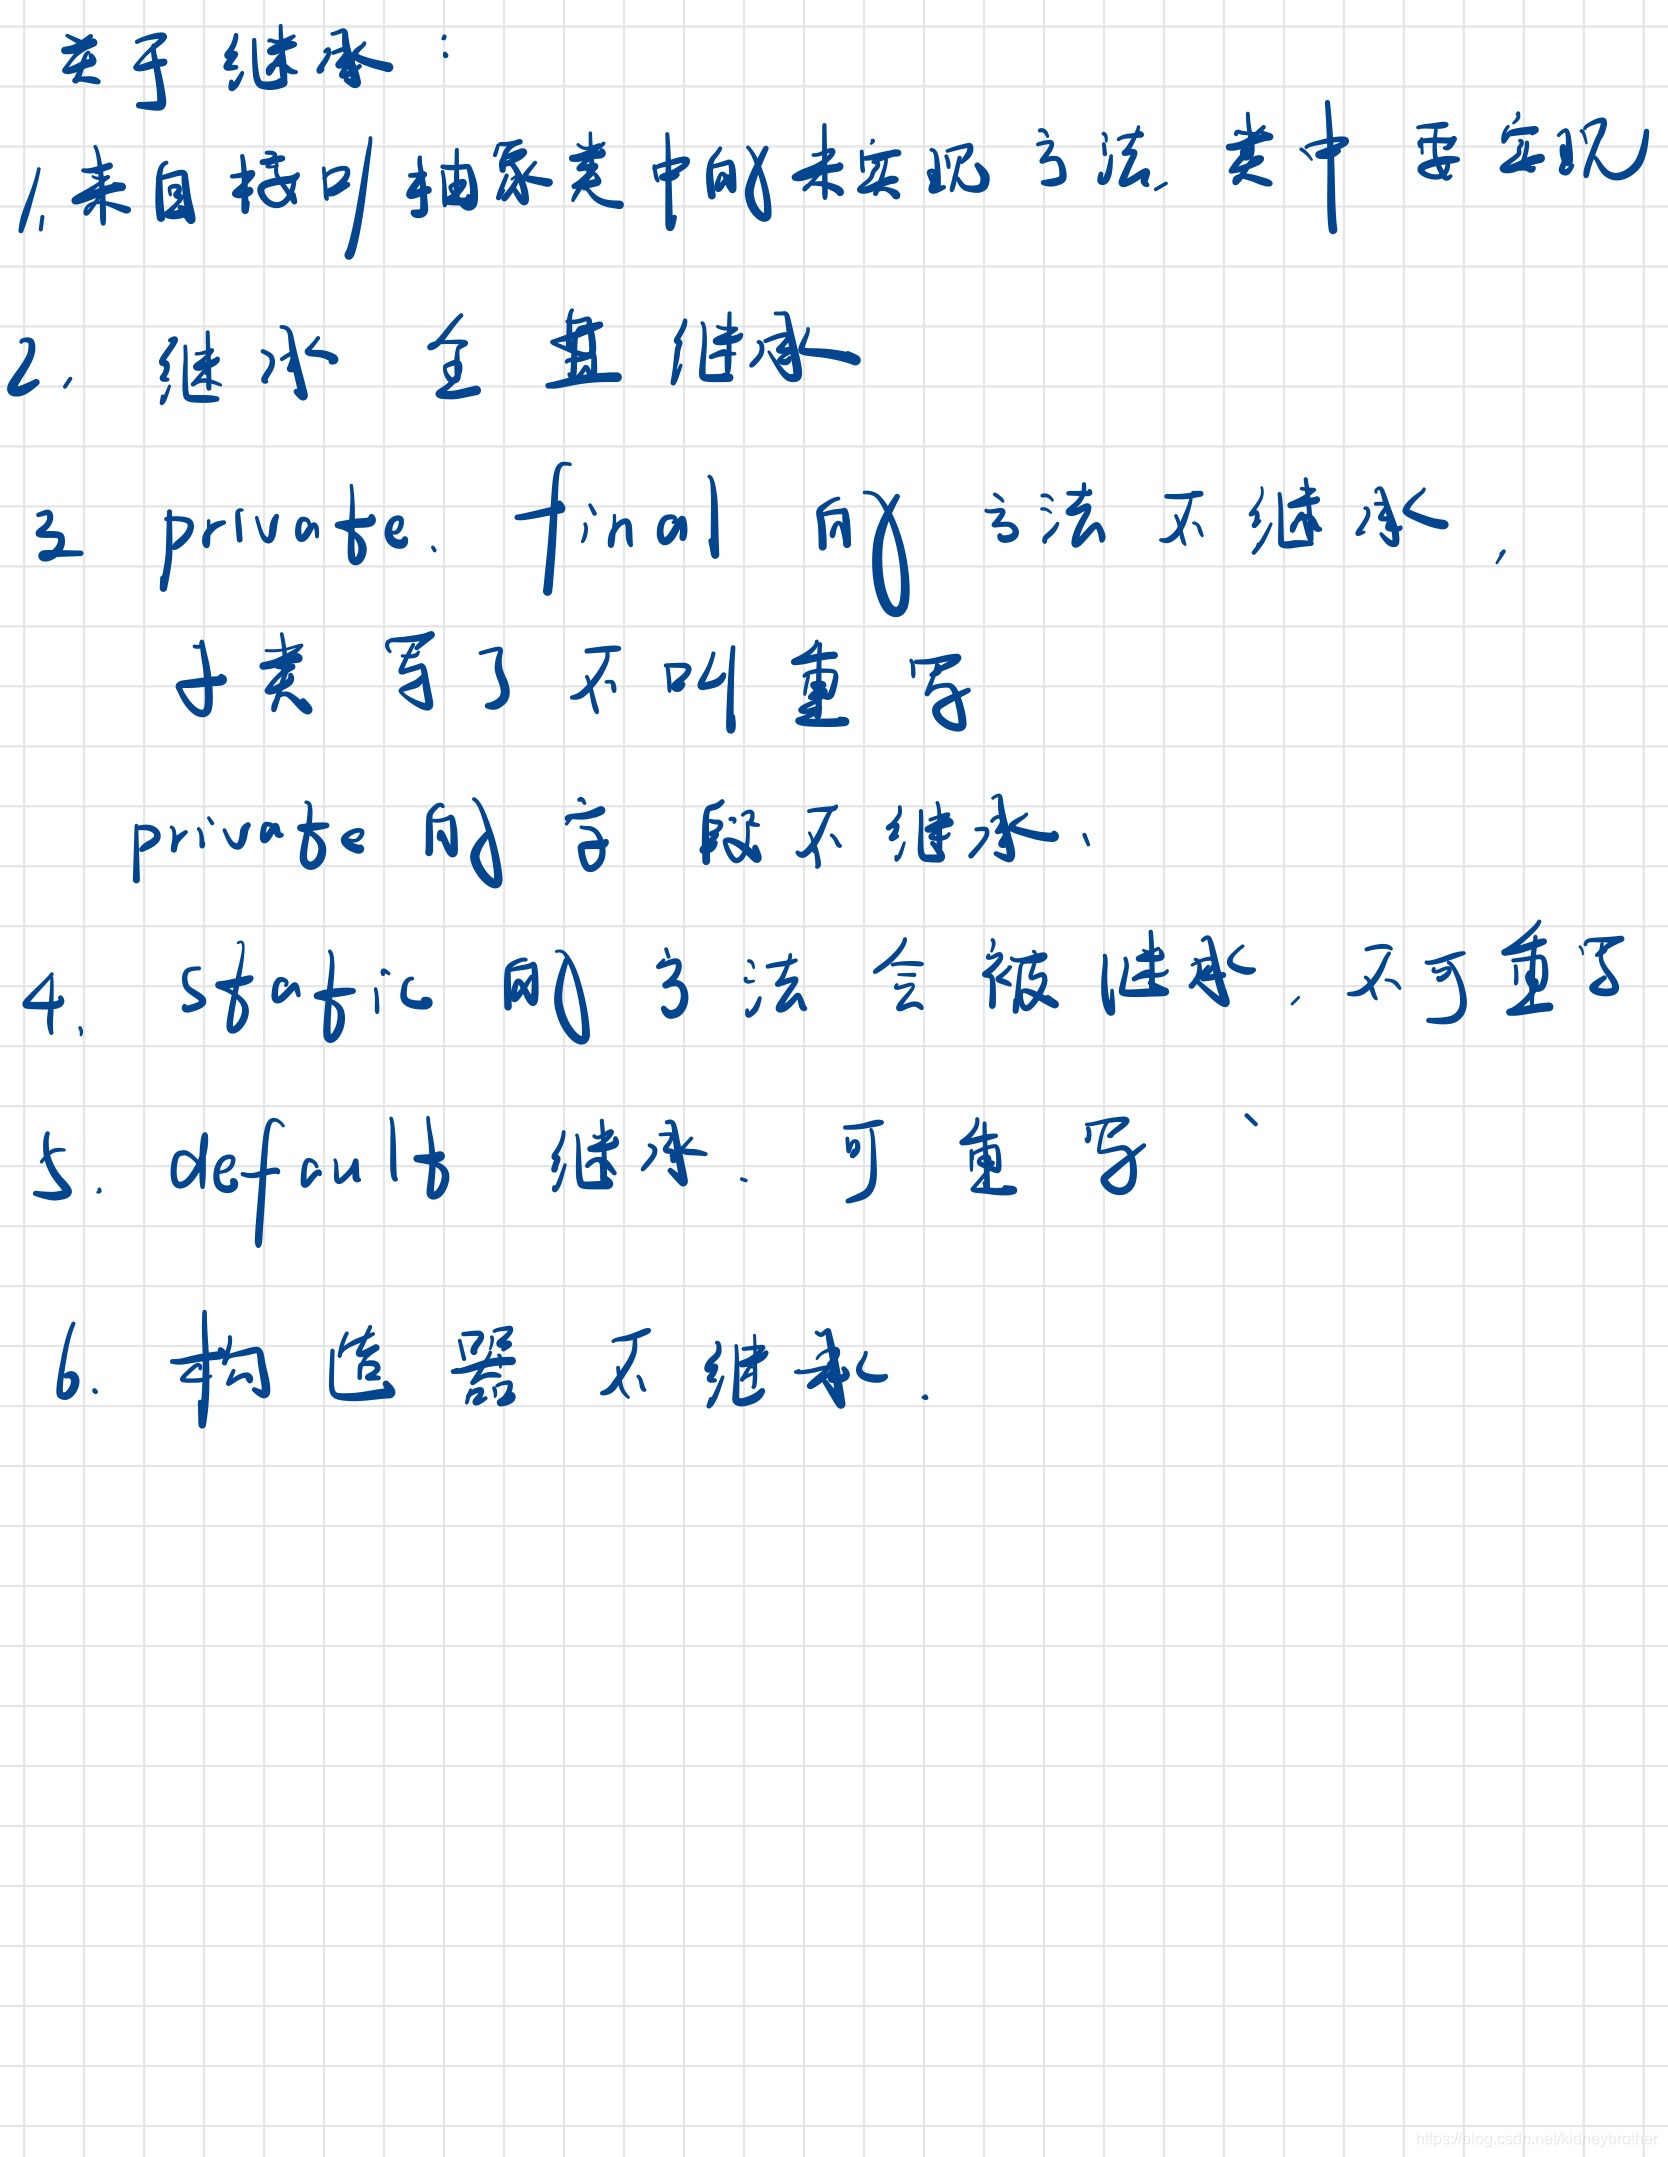 关于继承：
1. 来自接口/抽象类中的未实现方法，类中要实现
2. 继承全盘继承
3 private、final 的方法不继承，
子类写了不叫重写
private 的字段不继承、
4. static 的方法会被继承，不可重写
5. default 继承、可重写
6. 构造器不继承.
https://blog.csdn.net/kidneybrother